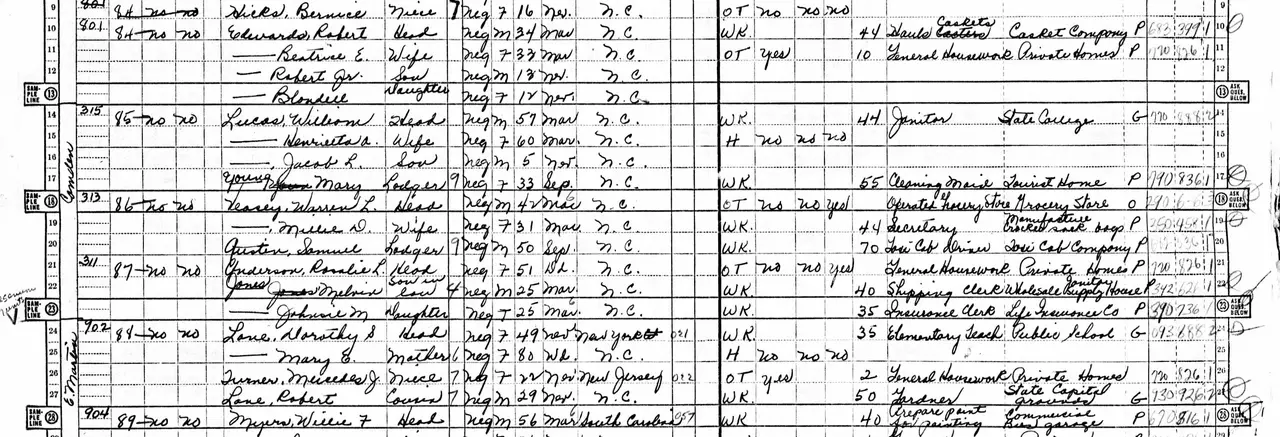 9 801 84 no no Hicks, Bernice Niece 7 Neg F 16 Nev. N.C. OT no no no 9
10 801 84 no no Edwards, Robert Head Neg M 34 Mar N.C. WK. 44 Hauls Caskets Casket Company P 10
11 — Beatrice E. Wife Neg F 33 Mar N.C. OT yes 10 General Housework Private Homes P 11
12 — Robert Jr. Son Neg M 13 Nev. N.C. 12
SAMPLE LINE 13 — Blondell Daughter Neg F 12 Nev. N.C. 13 ASK QUES. BELOW
14 315 85 no no Lucas, William Head Neg M 57 Mar N.C. WK 44 Janitor State College G 14
15 — Henrietta A. Wife Neg F 60 Mar. N.C. H no no no 15
16 —, Jacob L. Son Neg M 5 Nev. N.C. 16
17 Young Mary Lodger 9 Neg F 33 Sep. N.C. WK. 55 Cleaning Maid Tourist Home P 790 836 1 17
Camden
SAMPLE LINE 18 313 86 no no Warren L. Head Neg M 42 Mar N.C. OT no no yes Operates Grocery Store Grocery Store O 18 ASK QUES. BELOW
19 —, Millie D. Wife Neg F 31 Mar N.C. WK. 44 Secretary Manufacture bags P 19
20 Austen, Samuel Lodger 9 Neg M 50 Sep. N.C. WK. 70 Taxi Cab Driver Taxi Cab Company P 20
21 311 87 no no Anderson, Rosalie L. Head Neg F 51 Wd. N.C. OT no no yes General Housework Private Homes P 21
22 Jones Melvin Son in law 4 Neg M 25 Mar N.C. WK. 40 Shipping Clerk Wholesale Janitor Supply House P 22
SAMPLE LINE 23 — Johnnie M Daughter Neg F 25 Mar N.C. WK. 35 Insurance Clerk Life Insurance Co P 390 236 1 23 ASK QUES. BELOW
24 902 88 no no Lane, Dorothy S Head Neg F 49 Nev New York 021 WK. 35 Elementary Teach Public School G 24
25 — Mary E. Mother 6 Neg F 80 Wd. N.C. H no no no 25
E. Martin
26 Turner, Mercedes J. Niece 7 Neg F 22 Nev New Jersey 022 OT yes 2 General Housework Private Homes P 26
27 Lane, Robert Cousin 7 Neg M 29 Nev. N.C. WK. 50 Gardner State Capital Grounds G 730 926 2
SAMPLE LINE 28 904 89 no no Myers, Willie F Head Neg M 56 Mar South Carolina 057 WK 40 Prepare paint for painting Commercial Bus garage P 670 816 1 28 ASK QUES. BELOW